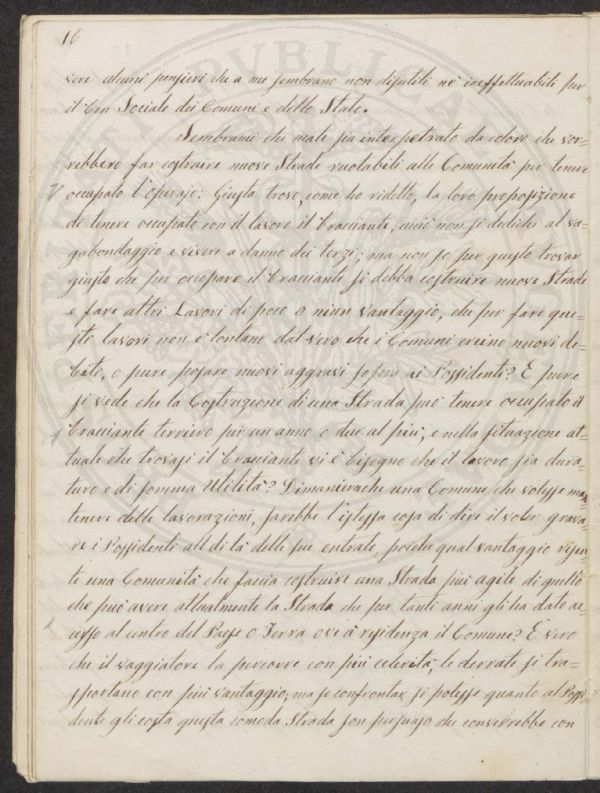 16
vere alcuni pensieri che a me sembrano non disutili nè ineffettuabili per
il ben Sociale dei Comuni e dello Stato.
Sembrami che male sia interpetrato da coloro che vor-
rebbero far costruire nuove Strade ruotabili alle Comunità per tenere
occupato l'Operajo: Giusta trovo, come ho ridetto, la loro proposizione
di tenere occupato con il lavoro il bracciante, acciò non si dedichi al va-
gabondaggio e vivere a danno dei terzi; ma non so per questo trovar
giusto che per occupare il bracciante si debba costruire nuove Strade
e fare altri Lavori di poco o niun vantaggio, che per fare que-
sti lavori non è lontano dal vero che i Comuni creino nuovi de-
biti, o pure posare nuovi aggravi sopra ai Possidenti? E pure
si vede che la Costruzione di una Strada può tenere occupato il
bracciante terriero per un anno o due al più, e nella situazione at-
tuale che trovasi il bracciante vi è bisogno che il lavoro sia dura-
turo e di somma Utilità? Dimanierache una Comune che volesse man
tenere delle lavorazioni, sarebbe l'istessa cosa di dire il voler grava-
re i Possidenti all di là delle sue entrate, poichè qual vantaggio risen-
te una Comunità che faccia costruire una Strada più agile di quello
che può avere attualmente la Strada che per tanti anni gli ha dato ac-
cesso al centro del Paese o Terra ove à residenza il Comune? È vero
che il viaggiatore la percorre con più celerità, le derrate si tra-
sportano con più vantaggio; ma se confrontar si potesse quanto al Possi
dente gli costa questa comoda Strada son persuaso che converrebbe con